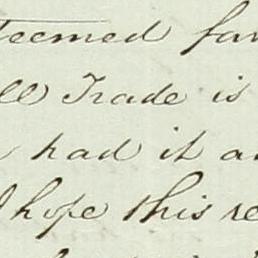 teemed fav
ll Trade is
had it a
I hope this re